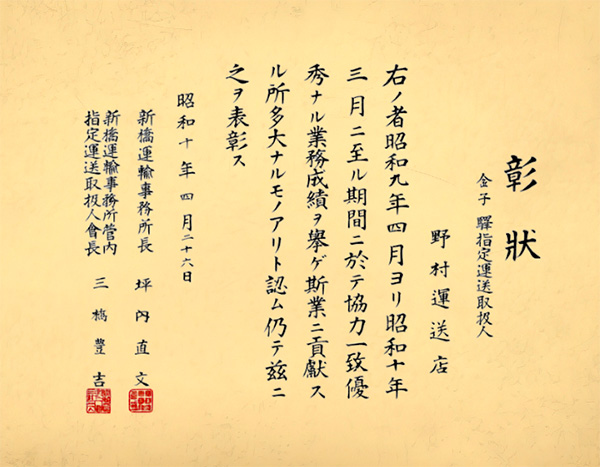 彰狀
金子驛指定運送取扱人
野村運送店
右ノ者昭和九年四月ヨリ昭和十年
三月ニ至ル期間ニ於テ協力一致優
秀ナル業務成績ヲ擧ゲ斯業ニ貢獻ス
ル所多大ナルモノアリト認ム仍テ茲ニ
之ヲ表彰ス
昭和十年四月二十六日
新橋運輸事務所長 坪內直文
新橋運輸事務所管內
指定運送取扱人會長 三橋豊吉